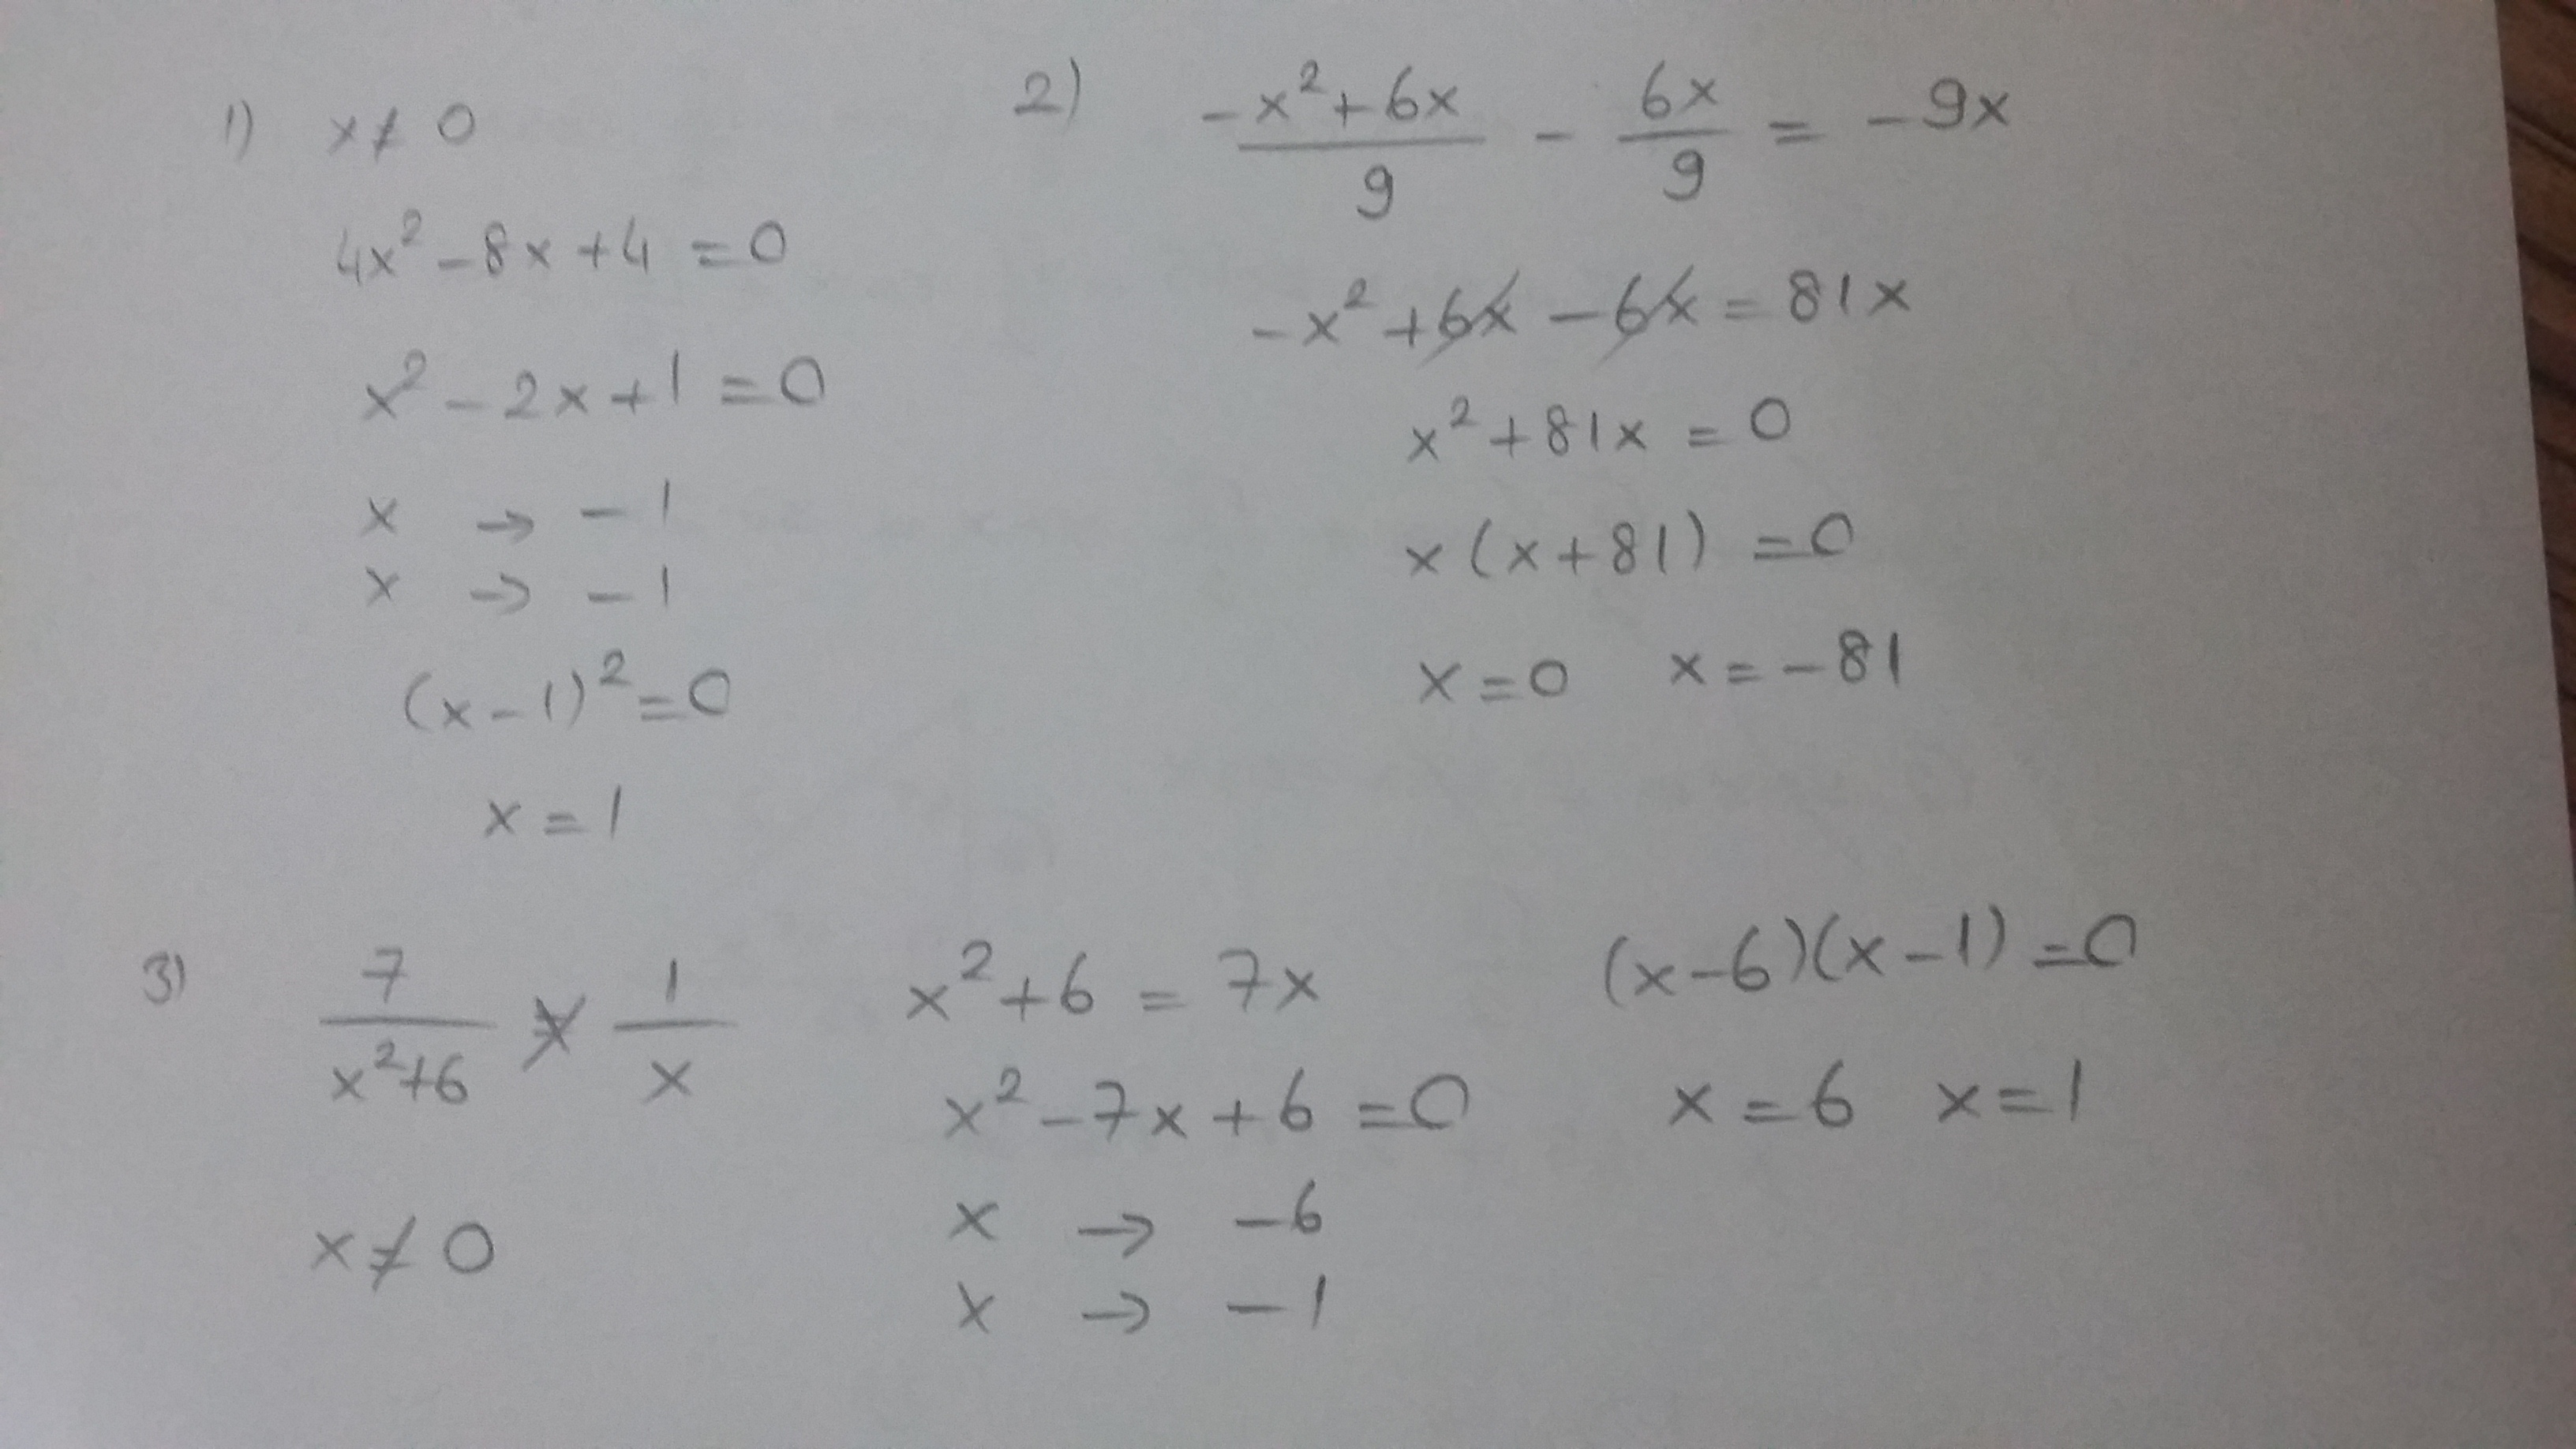 1) x ≠ 0
4x² - 8x + 4 = 0
x² - 2x + 1 = 0
x → -1
x → -1
(x - 1)² = 0
x = 1
2) (-x² + 6x)/9 - 6x/9 = -9x
-x² + 6x - 6x = 81x
x² + 81x = 0
x(x + 81) = 0
x = 0 x = -81
3) 7/(x² + 6) = 1/x
x ≠ 0
x² + 6 = 7x
x² - 7x + 6 = 0
x → -6
x → -1
(x - 6)(x - 1) = 0
x = 6 x = 1